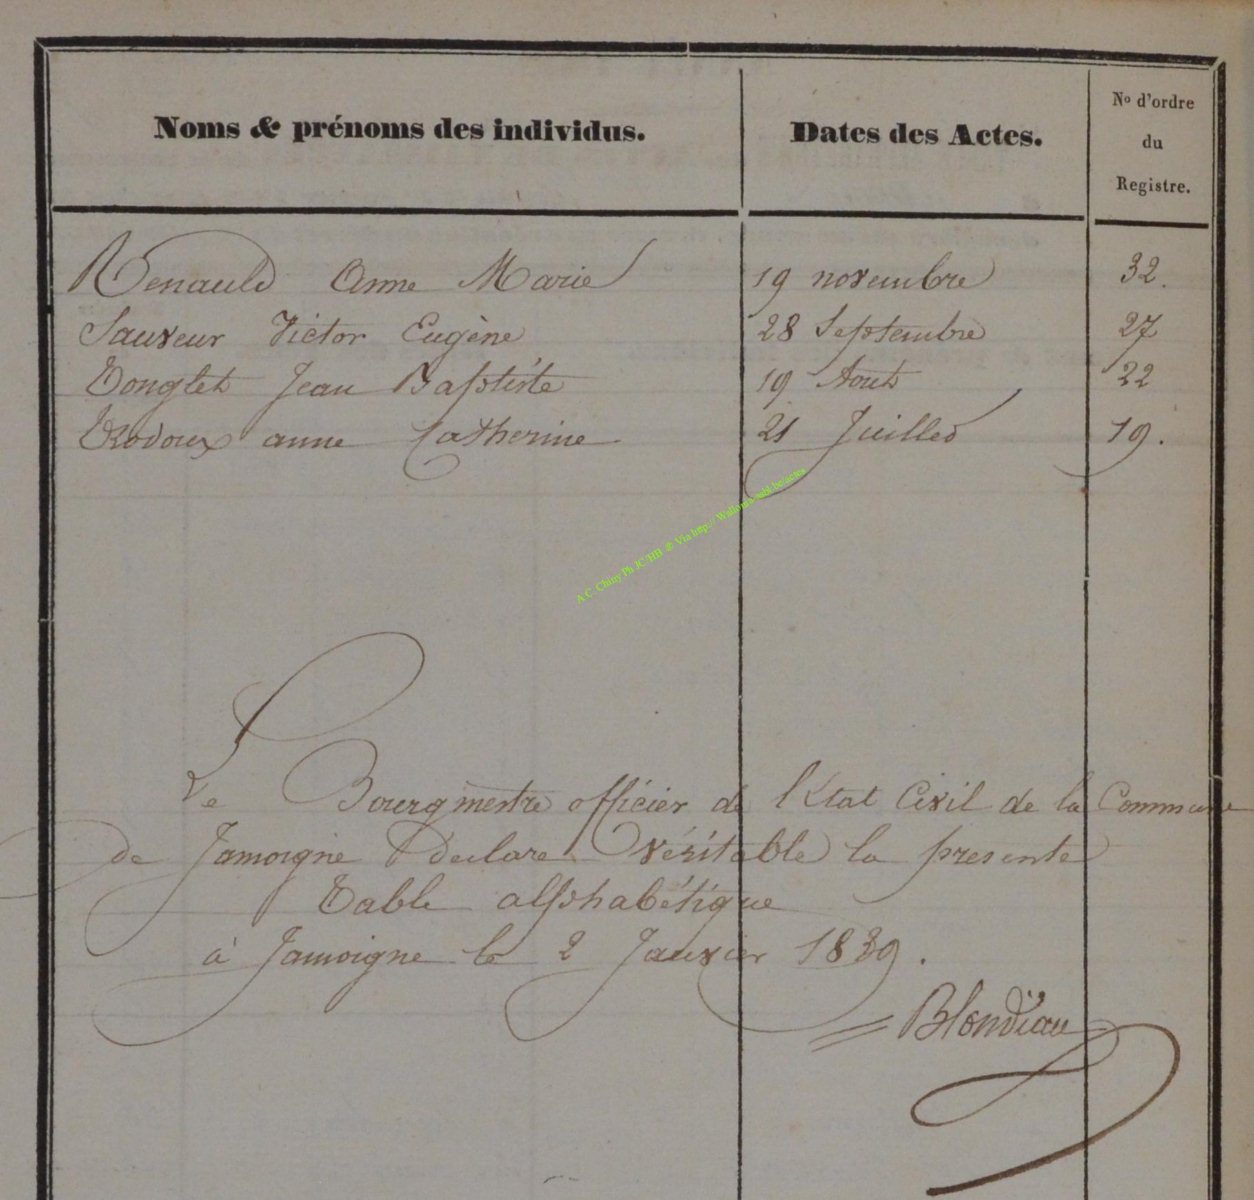 Noms & prénoms des individus. Dates des Actes. No d'ordre du Registre.
Renauld Anne Marie 19 novembre 32.
Sauveur Victor Eugène 28 Septembre 27
Tonglet Jean Baptiste 19 Aout 22
Trodoux anne Catherine 21 Juillet 19.
A.C. Chiny Ph JC/HB @ Via http://
Le Bourgmestre officier de l'Etat Civil de la Commune
de Jamoigne déclare véritable la présente
Table alphabétique
à Jamoigne le 2 Janvier 1839.
Blondiau